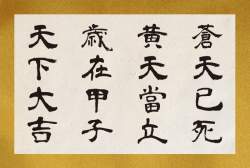 蒼天已死
黃天當立
歲在甲子
天下大吉